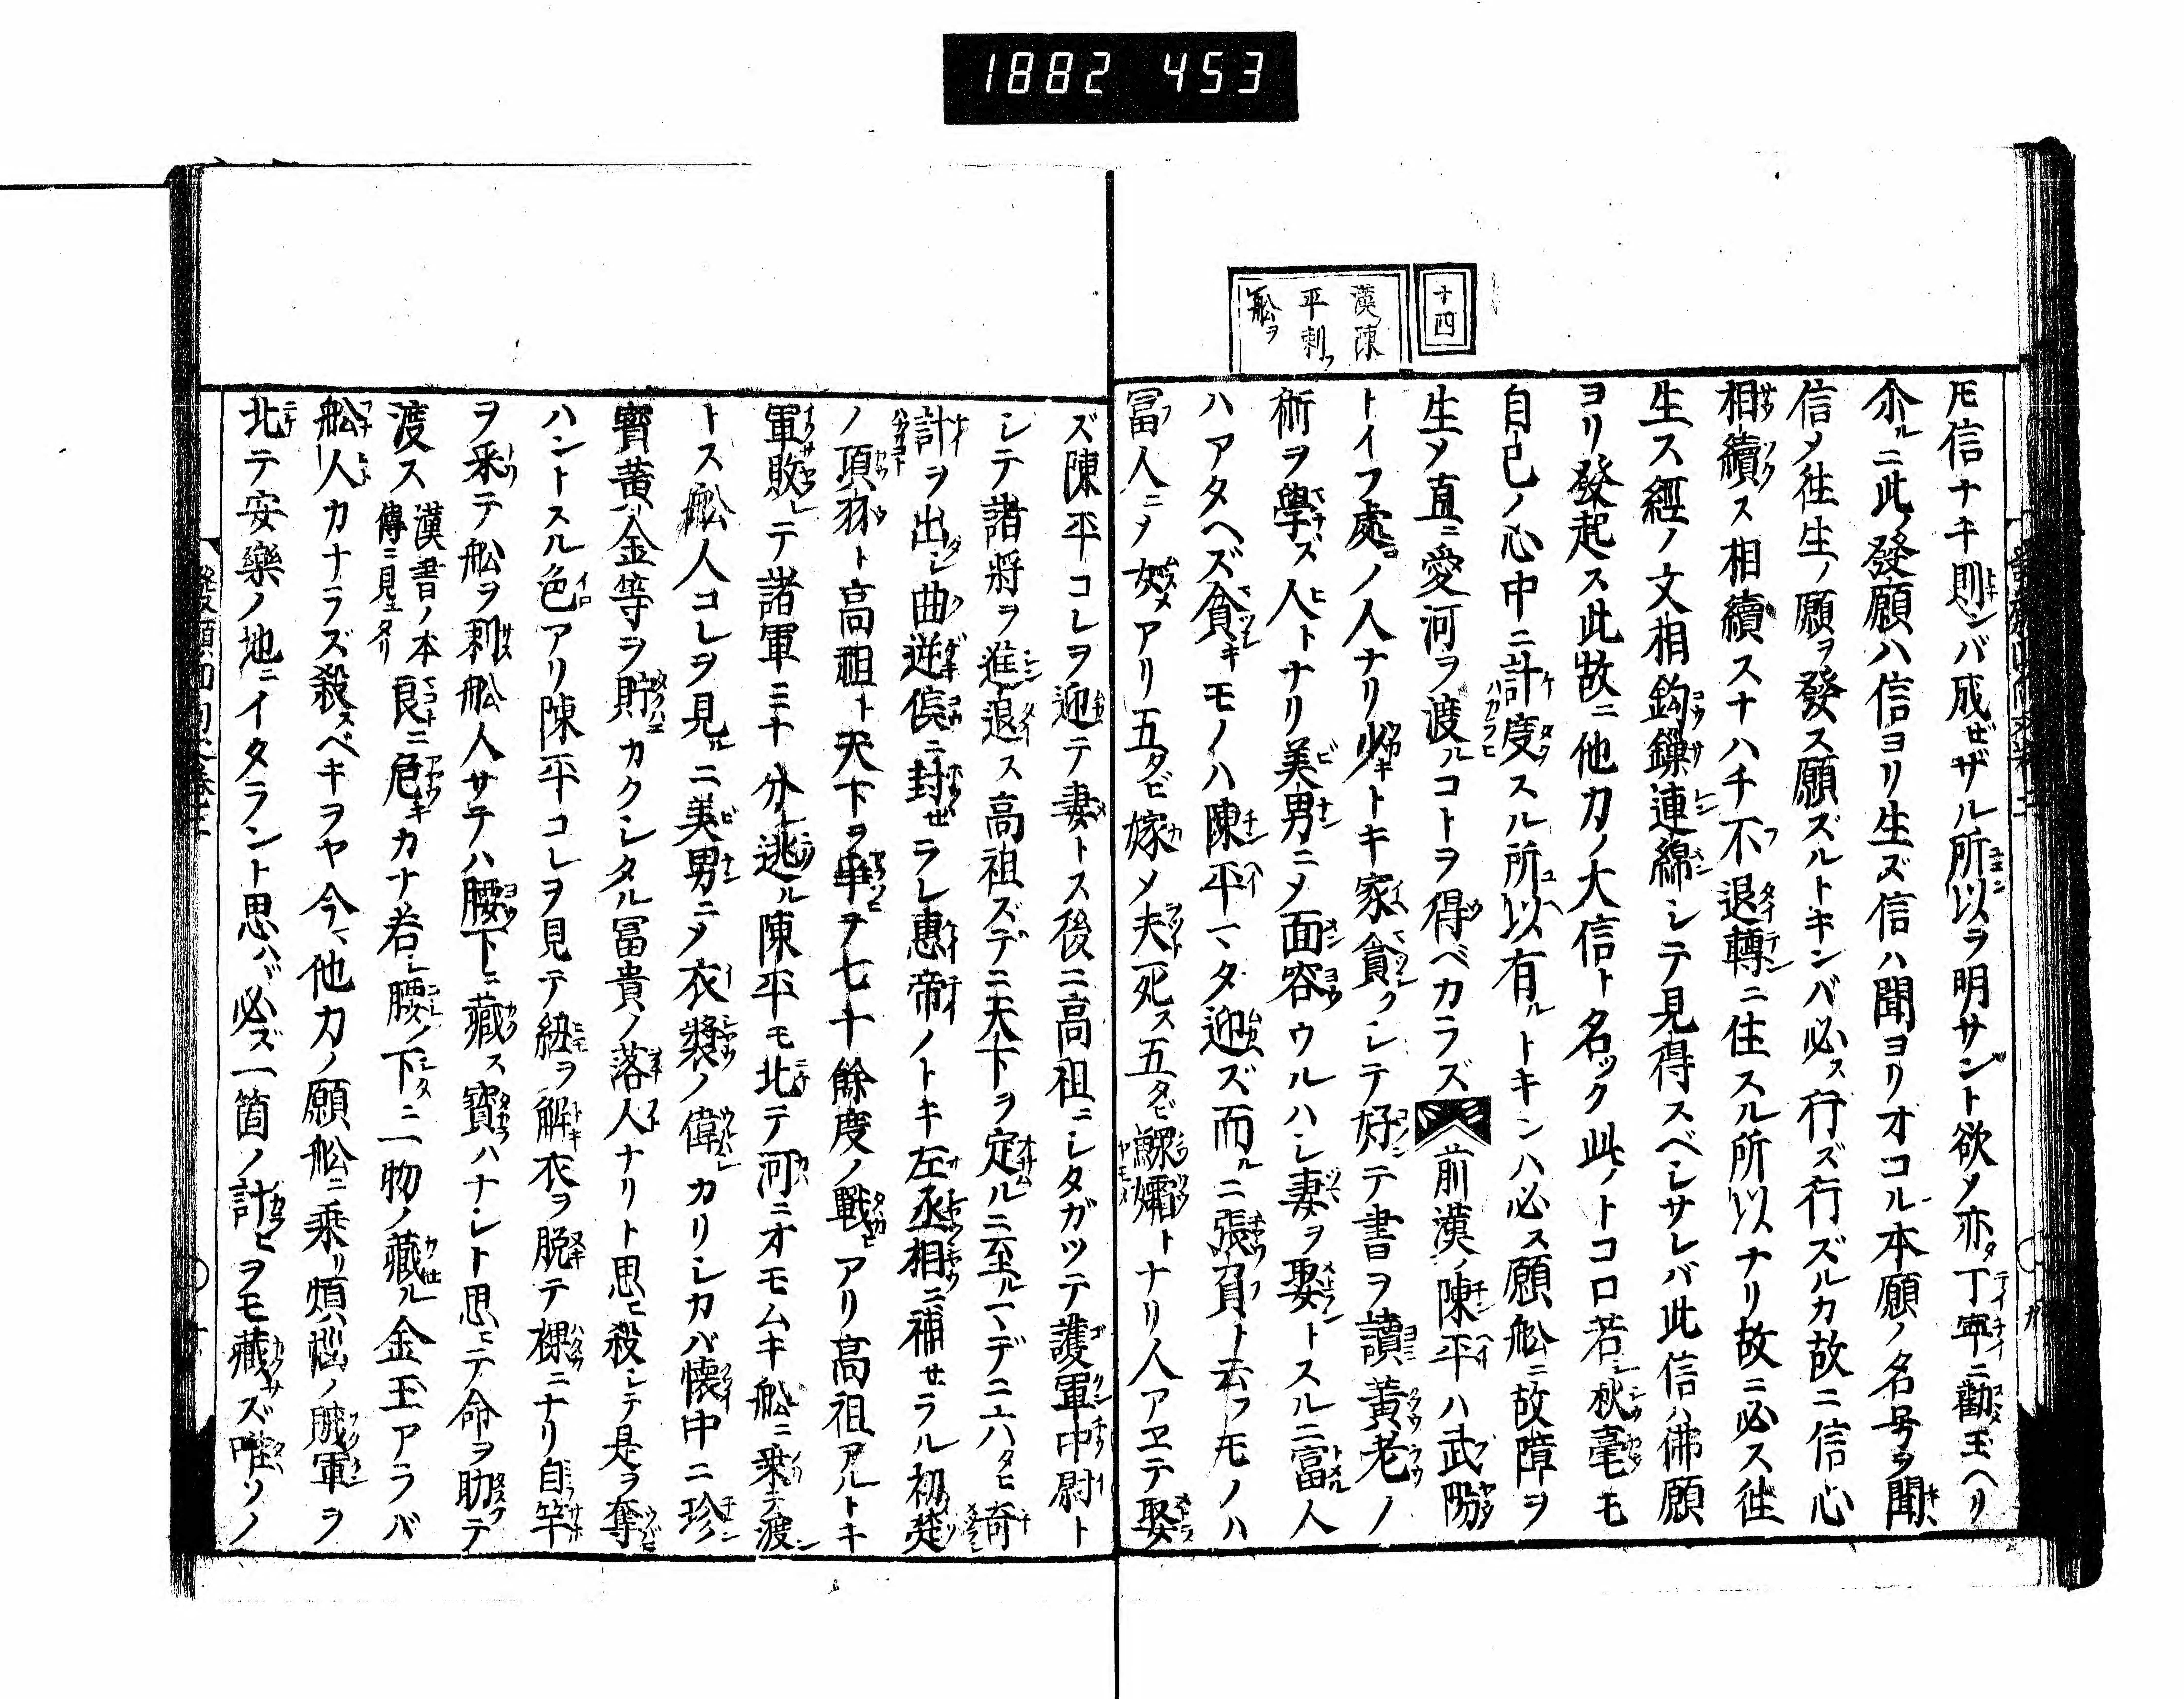 1882 453
十四
漢陳
平刺ㇲ
舩ヲ
𪜈信ナキ則ンバ成ゼザル所以ヲ明サント欲メ亦タ丁寧ニ勸玉ヘリ
尒ルニ此ノ發願ハ信ヨリ生ズ信ハ聞ヨリオコル本願ノ名号ヲ聞
信メ往生ノ願ヲ發ス願ズルトキンバ必ス行ズ行ズルカ故ニ信心
相續ス相續スナハチ不退轉ニ住スル所以ナリ故ニ必ス徃
生ス經ノ文相鈎鏁連綿シテ見得スベシサレバ此信ハ佛願
ヨリ發起ス此故ニ他力ノ大信ト名ツク此ノトコロ若シ秋毫モ
自己ノ心中ニ計度スル所以有ルトキンハ必ス願舩ニ故障ヲ
生メ直ニ愛河ヲ渡ルコトヲ得ベカラズ前漢ノ陳平ハ武陽
トイフ處ノ人ナリ少キトキ家貪クシテ好テ書ヲ讀黃老ノ
術ヲ學ズ人トナリ美男ニメ面容ウルハシ妻ヲ娶トスルニ富人
ハアタヘズ貪キモノハ陳平マタ迎ズ而ルニ張負ト云フモノハ
冨人ニメ女メアリ五タビ嫁メ夫死ス五タビ鰥孀トナリ人アヱテ娶
ズ陳平コレヲ迎テ妻トス後ニ高祖ニシタガツテ護軍中尉ト
シテ諸將ヲ進退ス高祖ズデニ天下ヲ定ルニ至ルマデニ六タヒ奇
計ヲ出シ曲逆侯ニ封ゼラレ惠帝ノトキ左丞相ニ補サラル初楚
ノ項羽ト高祖ト天下ヲ爭ヲ七十餘度ノ戰アリ高祖アルトキ
軍敗レテ諸軍三十分レ逃ル陳平モ北テ河ニオモムキ舩ニ乘テ渡
トス舩人コレヲ見ルニ美男ニメ衣裝ノ偉シカリシカバ懷中ニ珍
寶黃金等ヲ貯カクシタル冨貴ノ落人ナリト思ヒ殺シテ是ヲ奪
ハントスル色アリ陳平コレヲ見テ紐ヲ解衣ヲ脫テ裸ニナリ自竿
ヲ釆テ舩ヲ刺舩人サテハ腰下ニ藏ス寶ハナシト思ヒテ命ヲ助テ
渡ス漢書ノ本傳ニ見エタリ良ニ危キカナ若シ腰ノ下ニ一物ノ藏ル金玉アラバ
舩人カナラズ殺スベキヲヤ今マ他力ノ願舩ニ乘リ煩惱ノ賊軍ヲ
北テ安樂ノ地ニイタラント思ハバ必ズ一箇ノ計ヒヲモ藏サズ唯ソノ